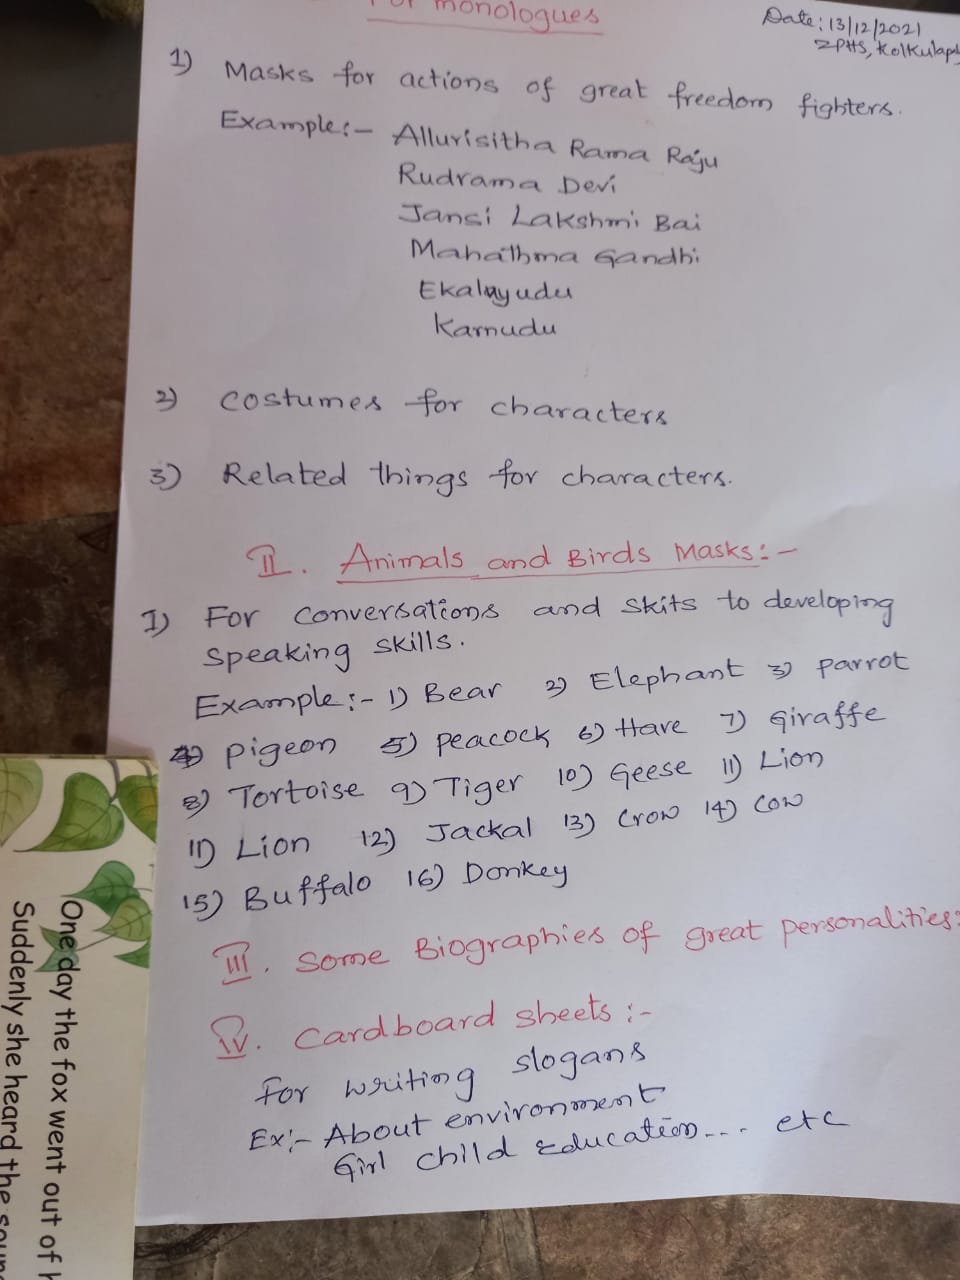 For monologues
Date: 13/12/2021
ZPHS, Kolkulap
1) Masks for actions of great freedom fighters.
Example:- Allurisitha Rama Raju
Rudrama Devi
Jansi Lakshmi Bai
Mahathma Gandhi
Ekalayudu
Karnudu
2) costumes for characters
3) Related things for characters.
II. Animals and Birds Masks:-
I) For conversations and skits to developing
speaking skills.
Example:- 1) Bear 2) Elephant 3) parrot
4) pigeon 5) peacock 6) Hare 7) Giraffe
8) Tortoise 9) Tiger 10) Geese 11) Lion
11) Lion 12) Jackal 13) Crow 14) Cow
15) Buffalo 16) Donkey
III. Some Biographies of great personalities:
IV. Cardboard sheets:-
For writing slogans
Ex:- About environment
Girl child Education... etc
One day the fox went out of
Suddenly she heard the